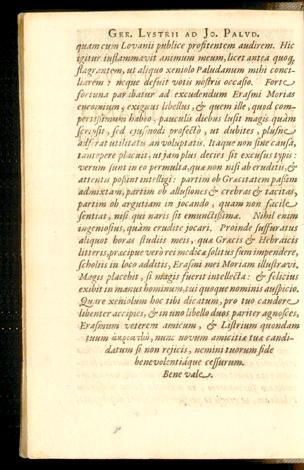 GER. LYSTRII AD JO. PALUD.
quam cum Lovanii publice profitentem audirem. Hic
igitur inflammavit animum meum, licet antea quoq;
flagrantem, ut aliquo xeniolo Paludanum mihi conci-
liarem; neque defuit votis nostris occasio. Forte
fortuna parabatur ad excudendum Erasmi Moriae
encomium, exiguus libellus, & quem ille, quod com-
pertissimum habeo, pauculis diebus lusit magis quàm
scripsit, sed ejusmodi profectò, ut dubites, plusne
adferat utilitatis an voluptatis. Itaque non sine causa,
tantopere placuit, ut jam plus decies sit excusus typis:
verum sunt in eo permulta, quae non nisi ab eruditis, &
attentis possint intelligi: partim ob Graecitatem passim
admixtam, partim ob allusiones & crebras & tacitas,
partim ob argutiam in jocando, quam non facile
sentiat, nisi qui naris sit emunctissimae. Nihil enim
ingeniosius, quàm erudite jocari. Proinde suffuratus
aliquot horas studiis meis, qua Graecis & Hebraicis
litteris, praecipue verò rei medicae solitus sum impendere,
scholiis in loco additis, Erasmi mei Moriam illustravi.
Magis placebit, si magis fuerit intellecta: & felicius
exibit in manus hominum, tui quoque nominis auspicio.
Quare xeniolum hoc tibi dicatum, pro tuo candore
libenter accipies, & in uno libello duos pariter agnosces,
Erasmum veterem amicum, & Listrium quondam
tuum ἀκροατὴν, nunc novum amicitiae tuae candi-
datum si non rejicis, nemini tuorum fide
benevolentiâque cessurum.
Bene vale.